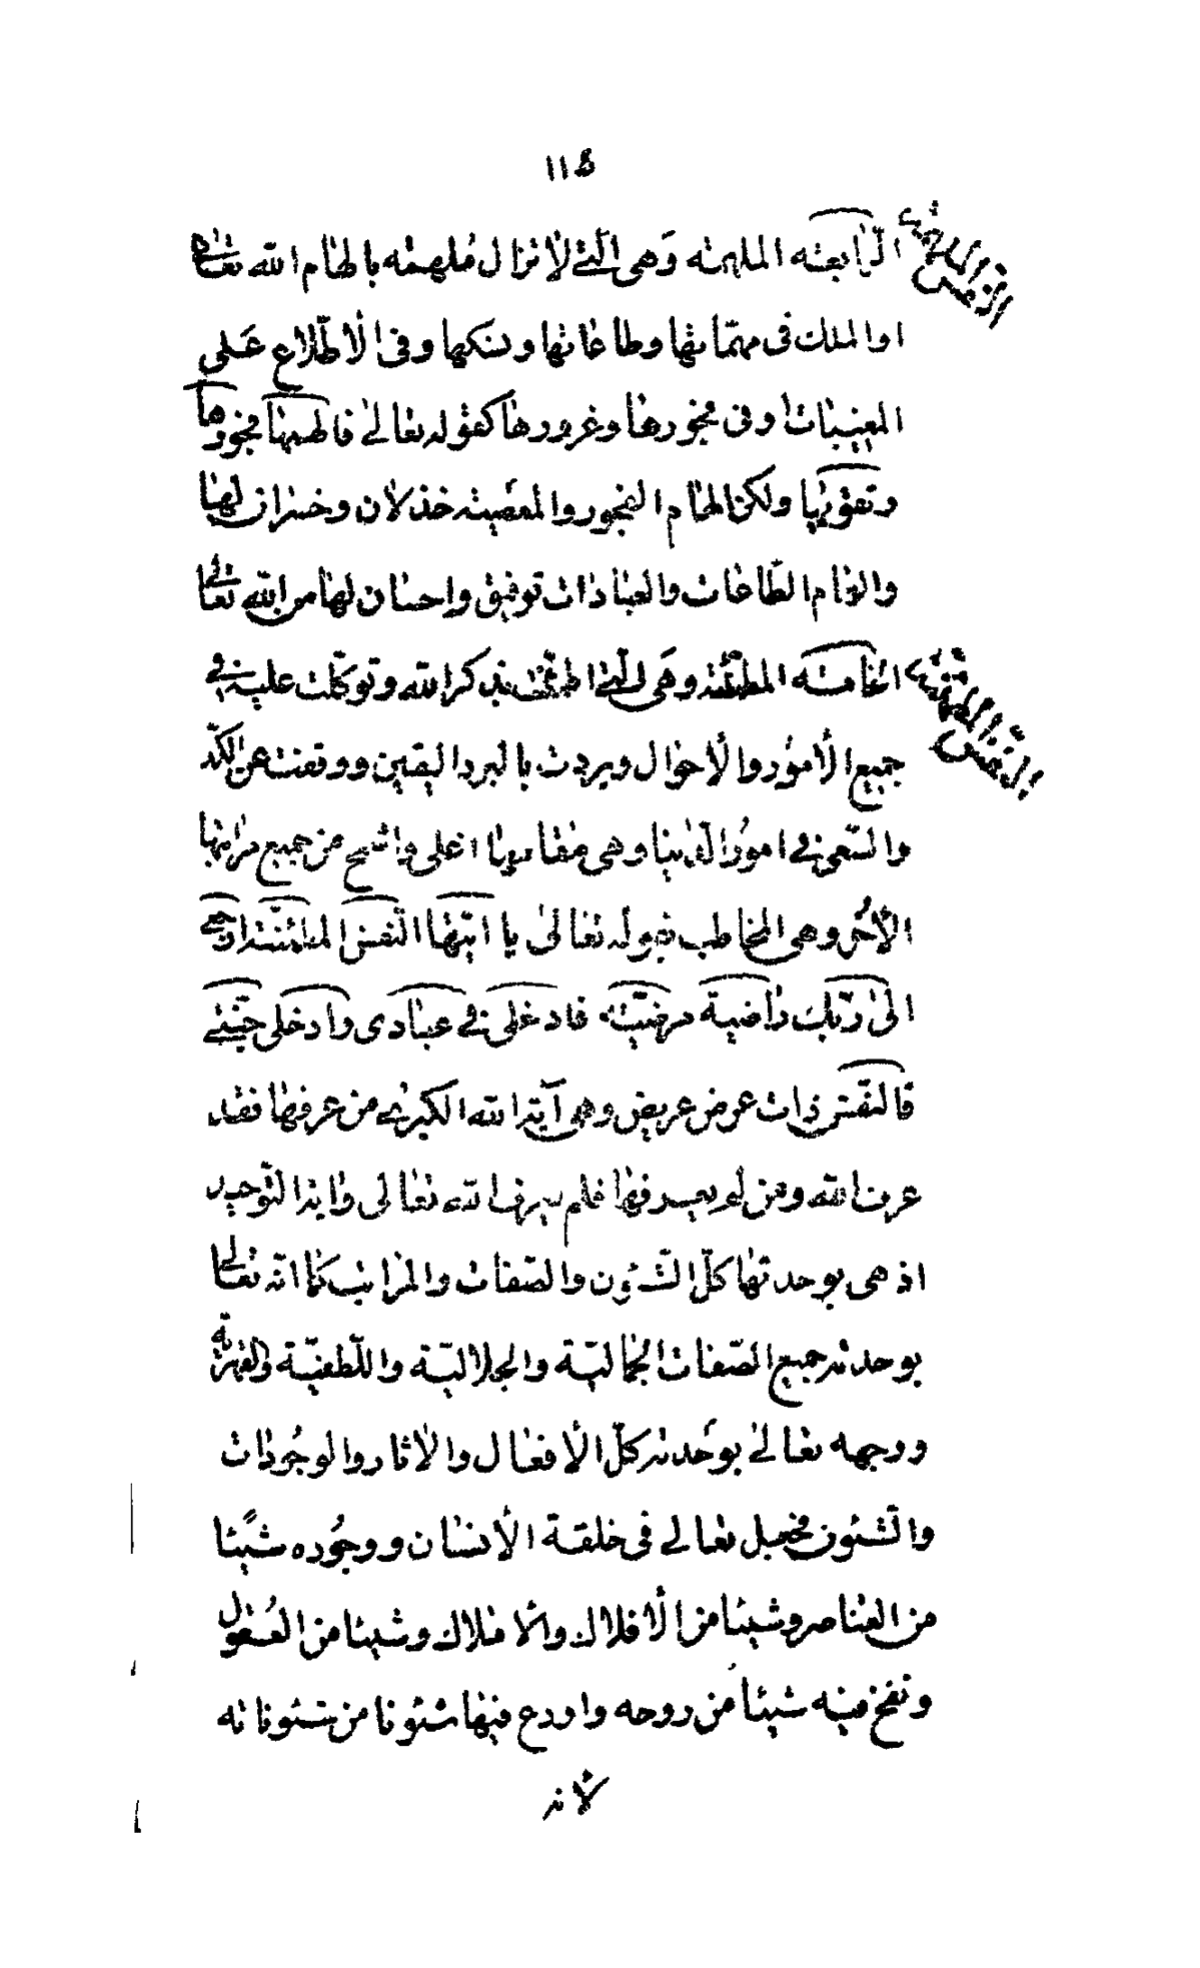 ١١٥
الرّابعة الملهمة وَهى الّتى لا تزال مُلهمة بالهام الله تعالى
النفس الملهمة
او الملك فى مهمّاتها وطاعاتها ونسكها وفى الأطّلاع عَلى
المغيبات وفى فجورها وغرورها كقوله تعالى فالهمها فجورها
وتقويها ولكن الهام الفجور والمعصية خذلان وخسران لها
والهام الطّاعات والعبادات توفيق وإحسان لها من الله تعالى
الخامسة المطمئنّة وهَى الّتى اطمئنّت بذكر الله وتوكّلت عليه فى
النّفس المطمئنّة
جميع الأمُور والأحوال وبردت بالبرد اليقين ووقفت عن الكدّ
والسّعى فى امور الدّنيا وهى مقامها اعلى واشمخ من جميع مراتبها
الأُخر وهى المخاطب بقوله تعالى يا ايّتها النّفس المطمئنّة ارجعى
الى ربّك راضية مرضيّة فادخلى فى عبادى وادخلى جنّتى
فالنّفس ذات عرض عريض وهى آية الله الكبرى من عرفها فقد
عرف الله ومن لم يعرفها فلم يعرف الله تعالى واية التّوحيد
اذ هى بوحدتها كلّ الشّئون والصّفات والمراتب كما انّه تعالى
بوحدته جميع الصّفات الجماليّة والجلاليّة واللّطفيّة والقهريّة
ووجهه تعالى بوَحدته كلّ الأفعال والأثار والوجُودات
والشّئون فجعل تعالى فى خلقة الأنسان ووجُوده شيئًا
من العناصر وشيئا من الأفلاك والأملاك وشيئا من العُقول
ونفخ فيه شيئا من روحه واودع فيها شئونا من شئوناته
لأنه